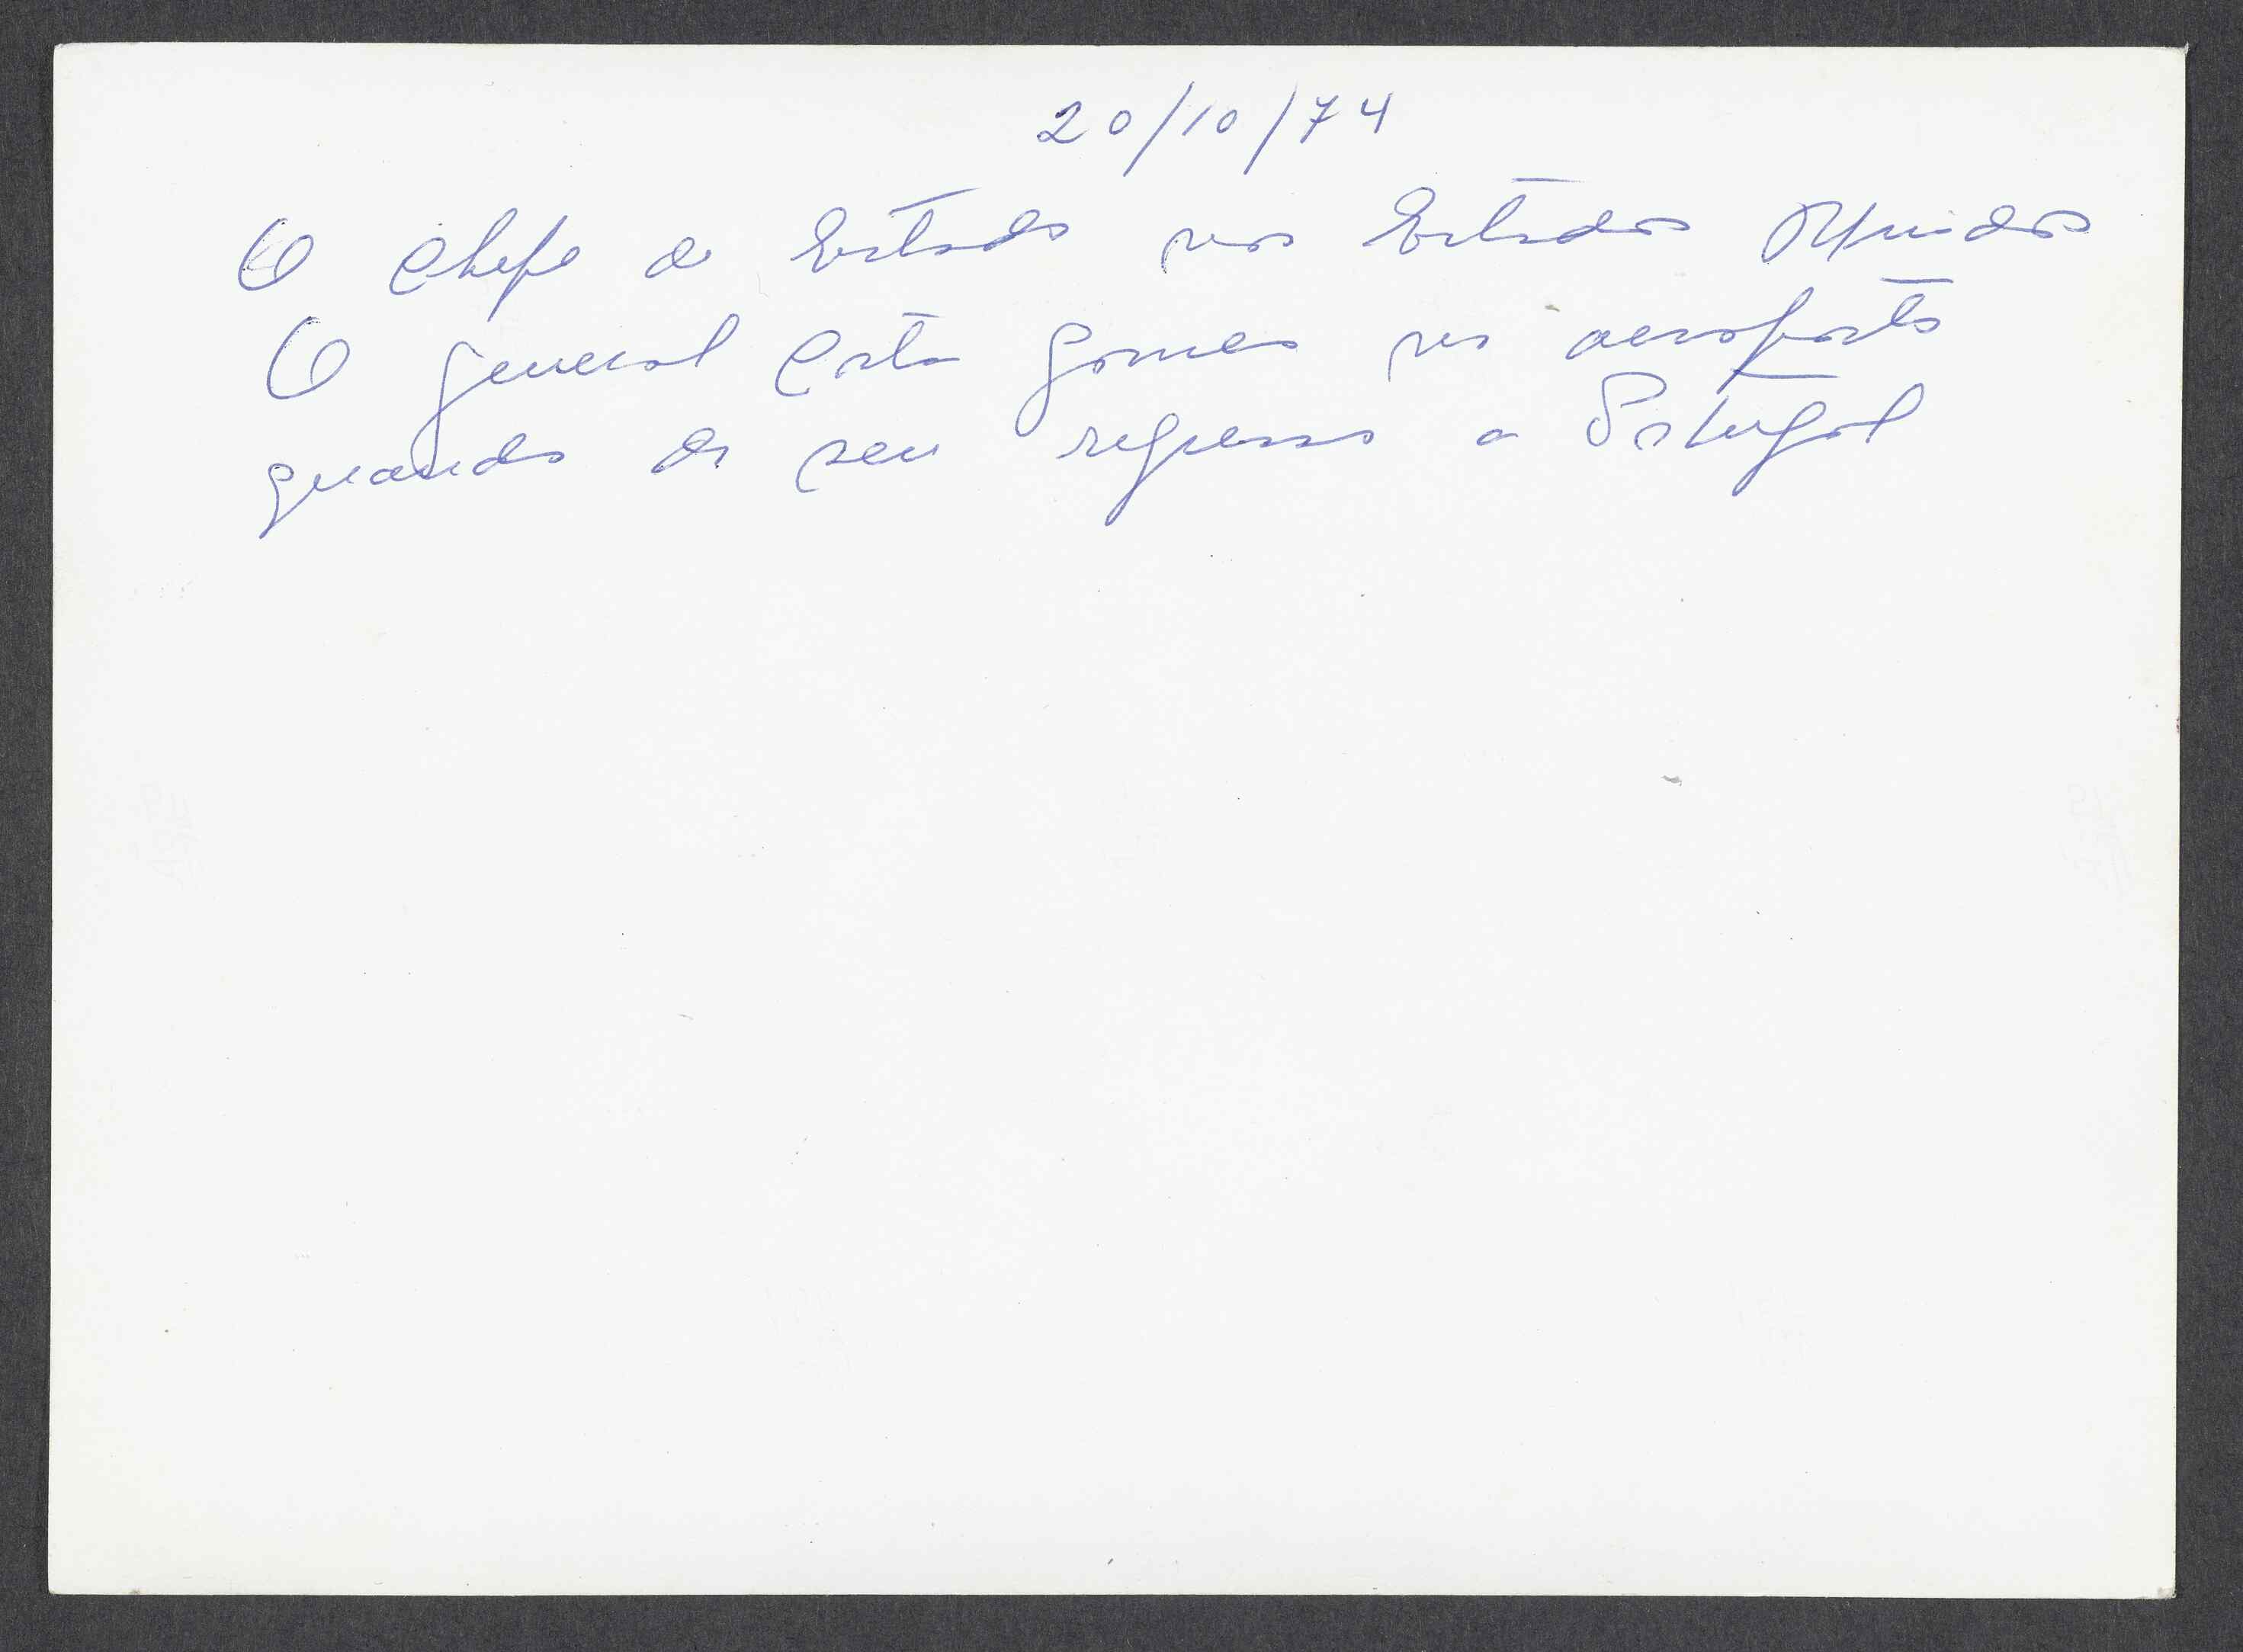 20/10/74
O Chefe de Estado nos Estados Unidos
O general Costa Gomes no aeroporto
quando do seu regresso a Portugal